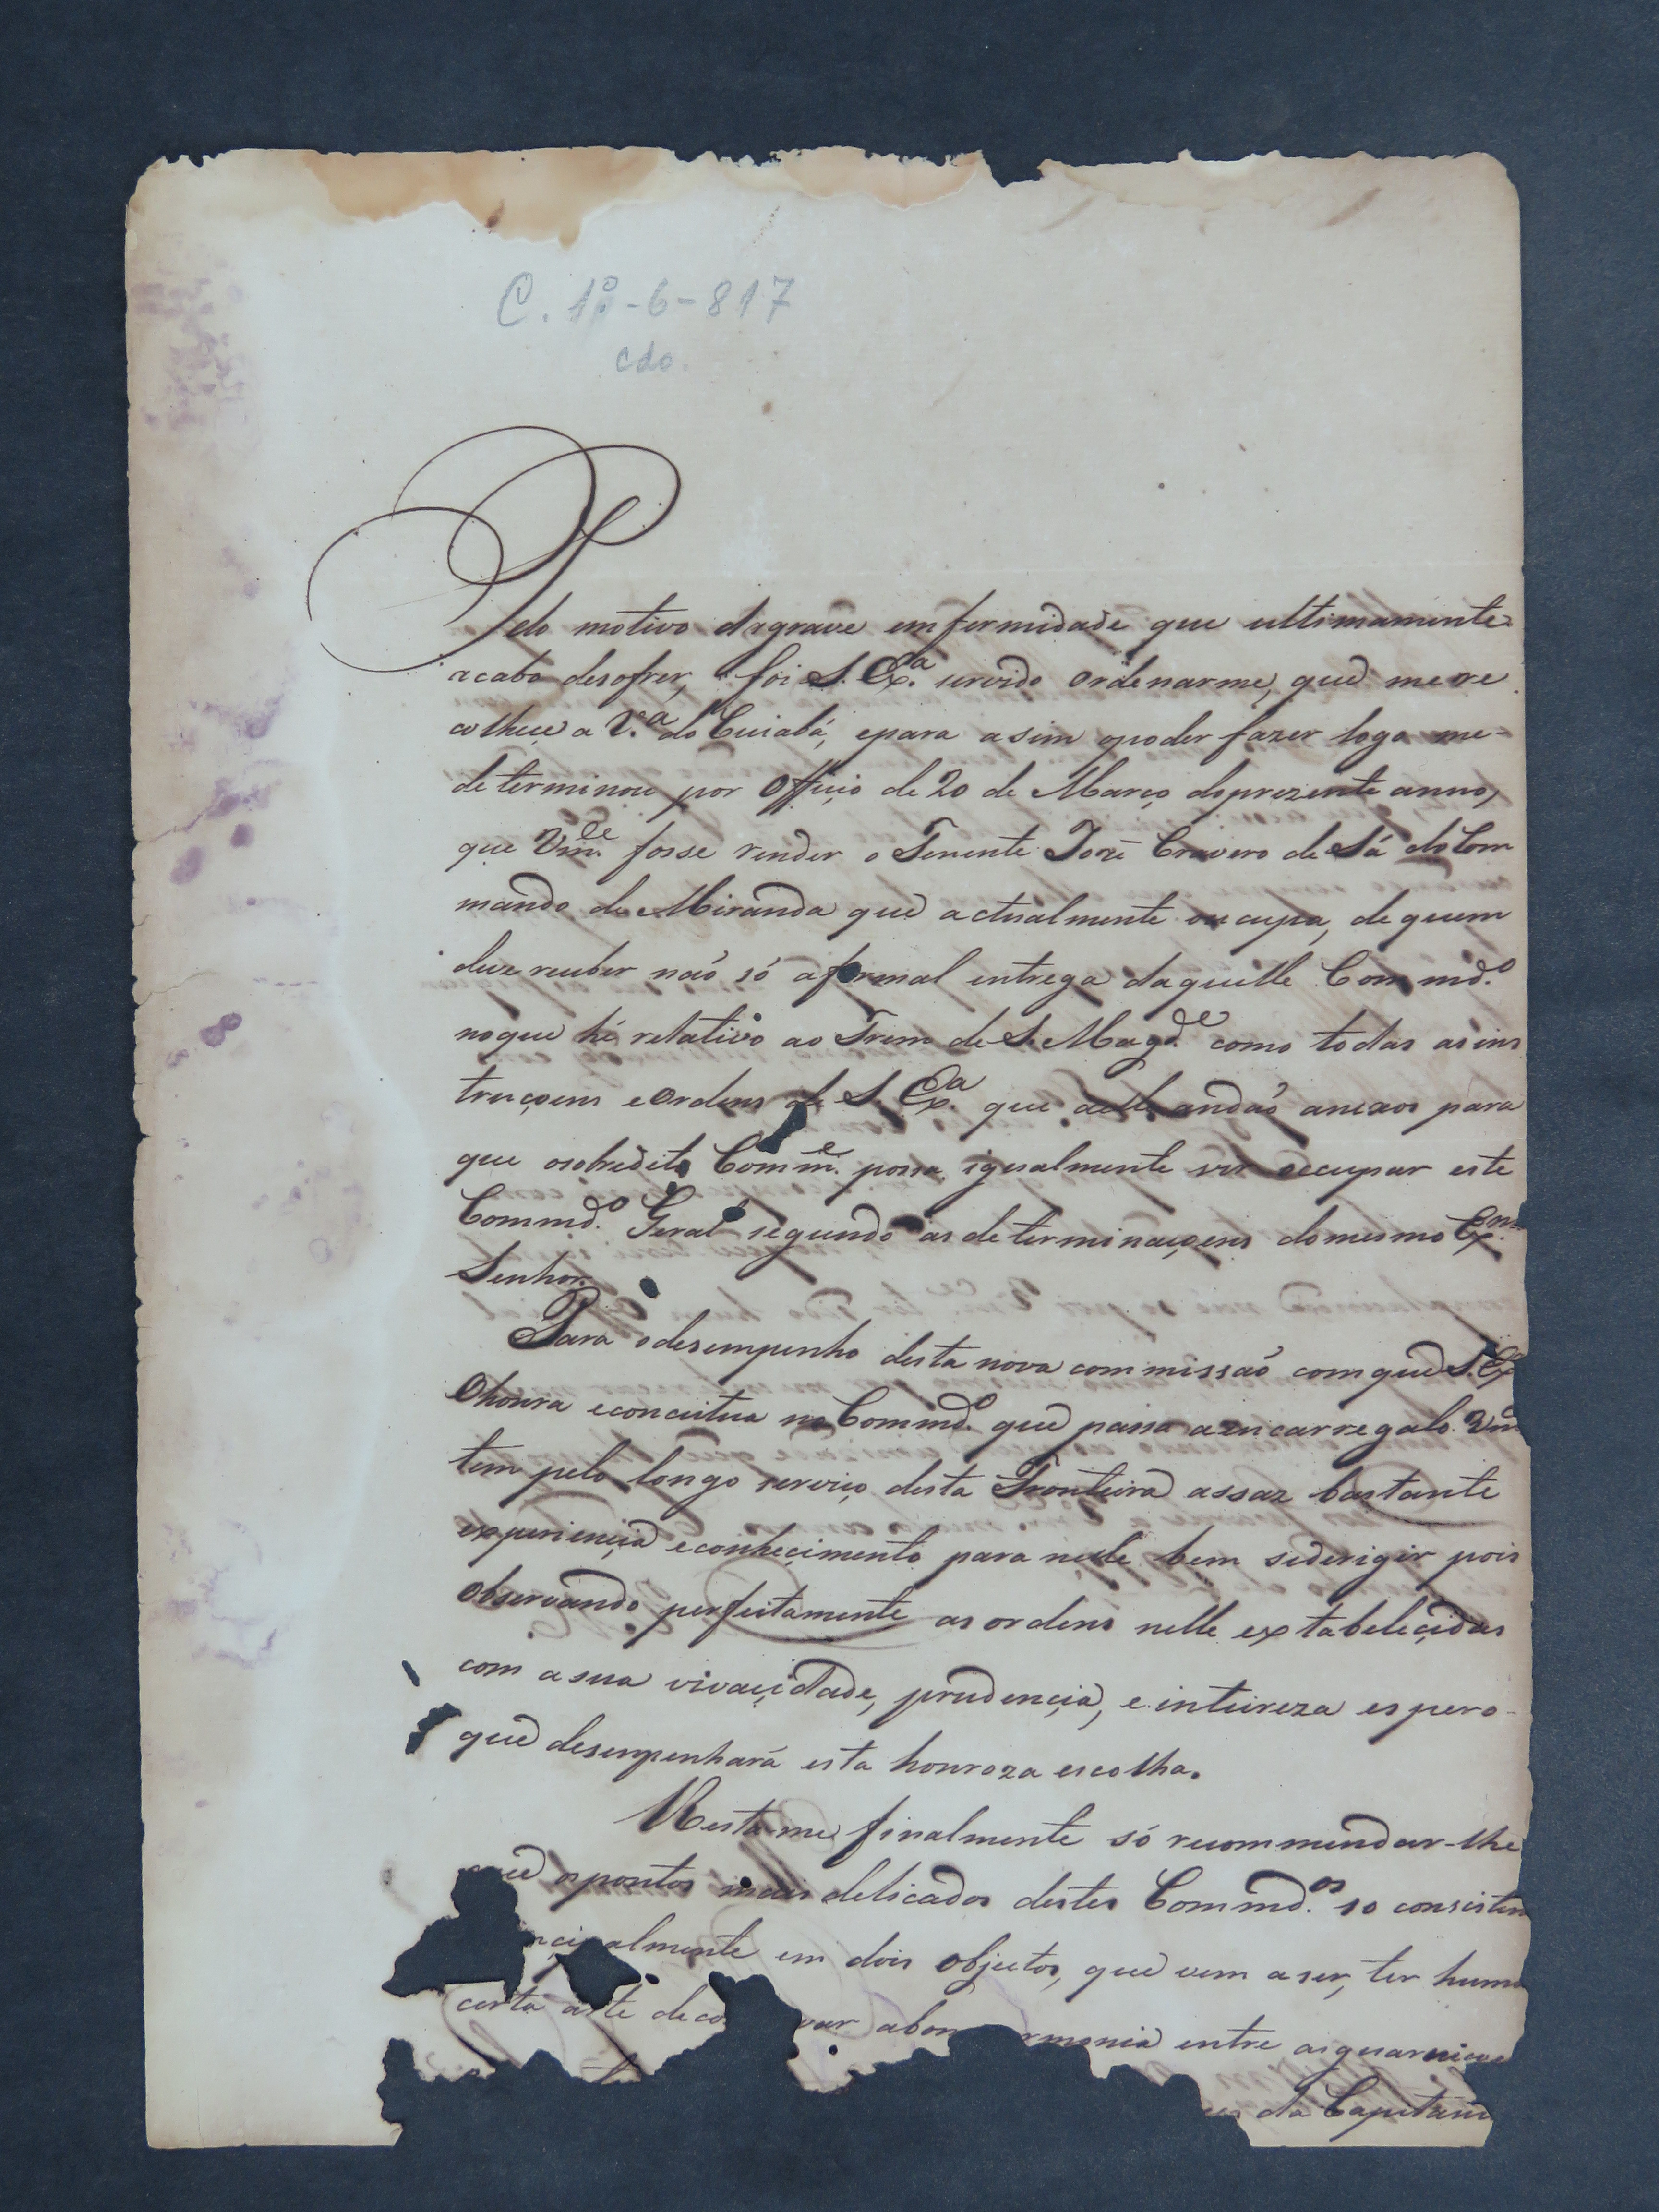 C. 1º-6-817
cdo.
Pelo motivo dagrave emfermidade que ulttimamente
acabo desofrer, foi S. Exª. servido ordenarme, que mere
colhece a Vª. do Cuiabá, epara asim opoder fazer logo me-
determinou por Officio de 20 de Março doprezente anno,
que Vmce. fosse render o Tenente Jozé Cravero de Sá do Com
mando de Miranda que actualmente occupa, de quem
deve receber naó só aformal entrega daquelle Commdº.
noque hé relativo ao Trem de S. Magde. como todas asins
truçoens eOrdens de S. Exª. que andaó anexos para
que osobredito Comme. possa igualmente vir occupar este
Commdº. Geral segundo as determinaçoens domesmo Exmo.
Senhor.
Para odesempenho desta nova commissaó comque S. Ex
Ohonra econceitua no Commdº. que passa aencarregalo Vm
tem pelo longo serviço desta Fronteira assaz bastante
experiençia econheçimento para nelle bem sederigir pois
Observando perfeitamente as ordens nelle extabeleçidas
com asua vivaçidade, prudençia, e inteireza espero-
que desempenhará esta honroza escolha.
Resta-me finalmente só recommendar-lhe
que ospontos mais delicados destes Commdos. so consistem
ncipalmente em dois objectos, que vem aser, ter huma
certa arte deco var abon rmonia entre asguarnico
es da Capitani